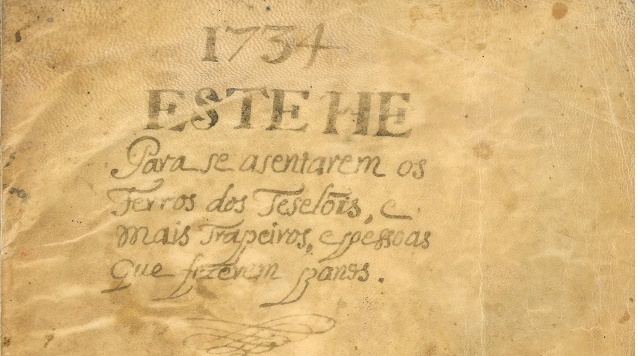 1734
ESTE HE
Para se asentarem os
Ferros dos Teselõis, e
Mais Trapeiros, e pessoas
Que fizerem panos.